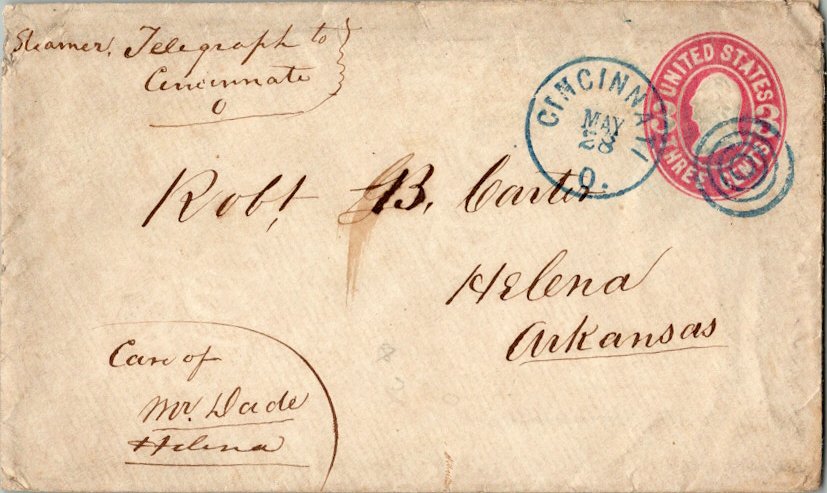 Steamer, Telegraph to
Cincinnate
O
CINCINNATI
MAY
28
O.
UNITED STATES
THREE CENTS
3 3
Robt GB. Carter
Helena
Arkansas
Care of
Mr. Dade
Helena